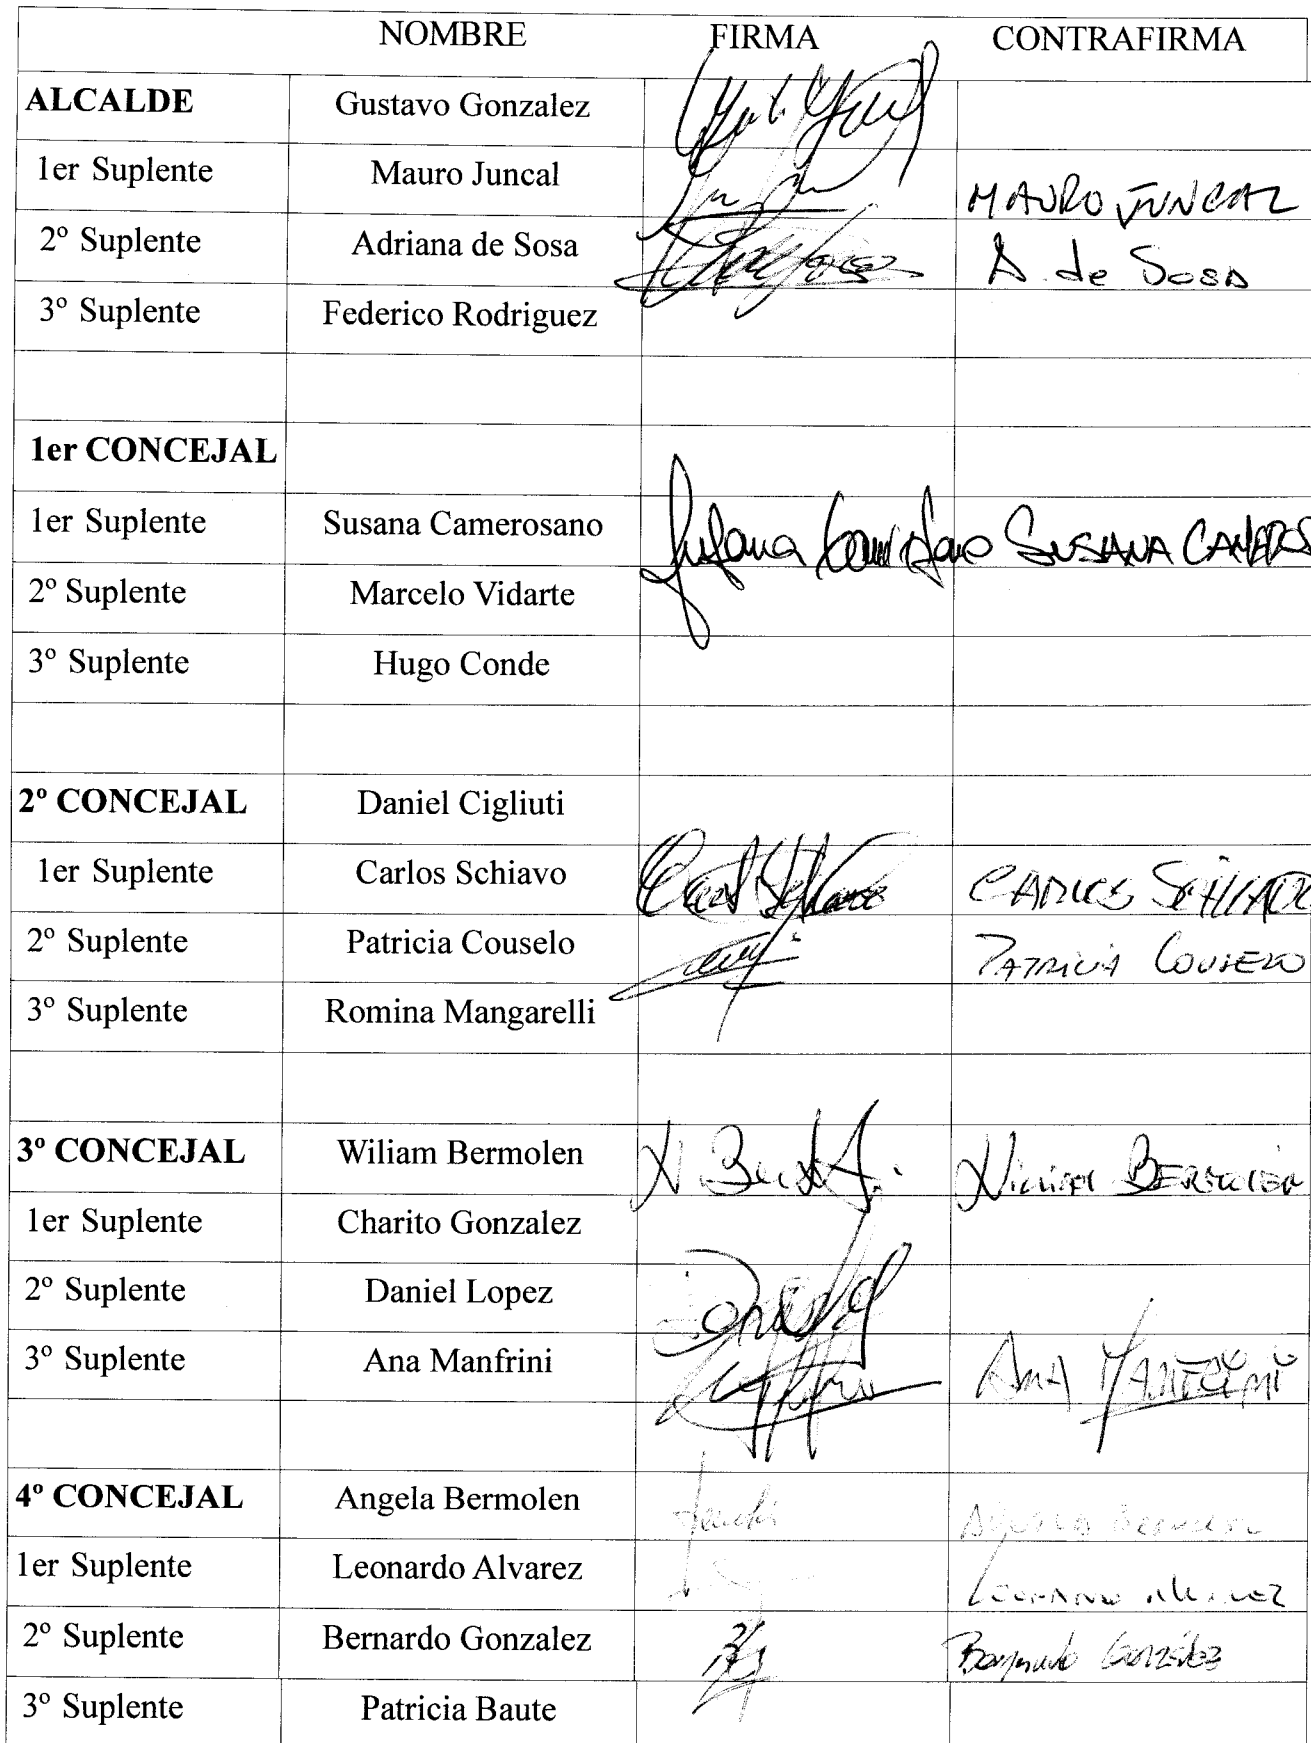 NOMBRE FIRMA CONTRAFIRMA
ALCALDE Gustavo Gonzalez
1er Suplente Mauro Juncal MAURO JUNCAL
2º Suplente Adriana de Sosa A. de Sosa
3º Suplente Federico Rodriguez
1er CONCEJAL
1er Suplente Susana Camerosano Susana SUSANA CAMEROS
2º Suplente Marcelo Vidarte
3º Suplente Hugo Conde
2º CONCEJAL Daniel Cigliuti
1er Suplente Carlos Schiavo CARLOS SCHIAVO
2º Suplente Patricia Couselo PATRICIA COUSELO
3º Suplente Romina Mangarelli
3º CONCEJAL Wiliam Bermolen
1er Suplente Charito Gonzalez
2º Suplente Daniel Lopez
3º Suplente Ana Manfrini ANA MANFRINI
4º CONCEJAL Angela Bermolen
1er Suplente Leonardo Alvarez
2º Suplente Bernardo Gonzalez Bernardo González
3º Suplente Patricia Baute